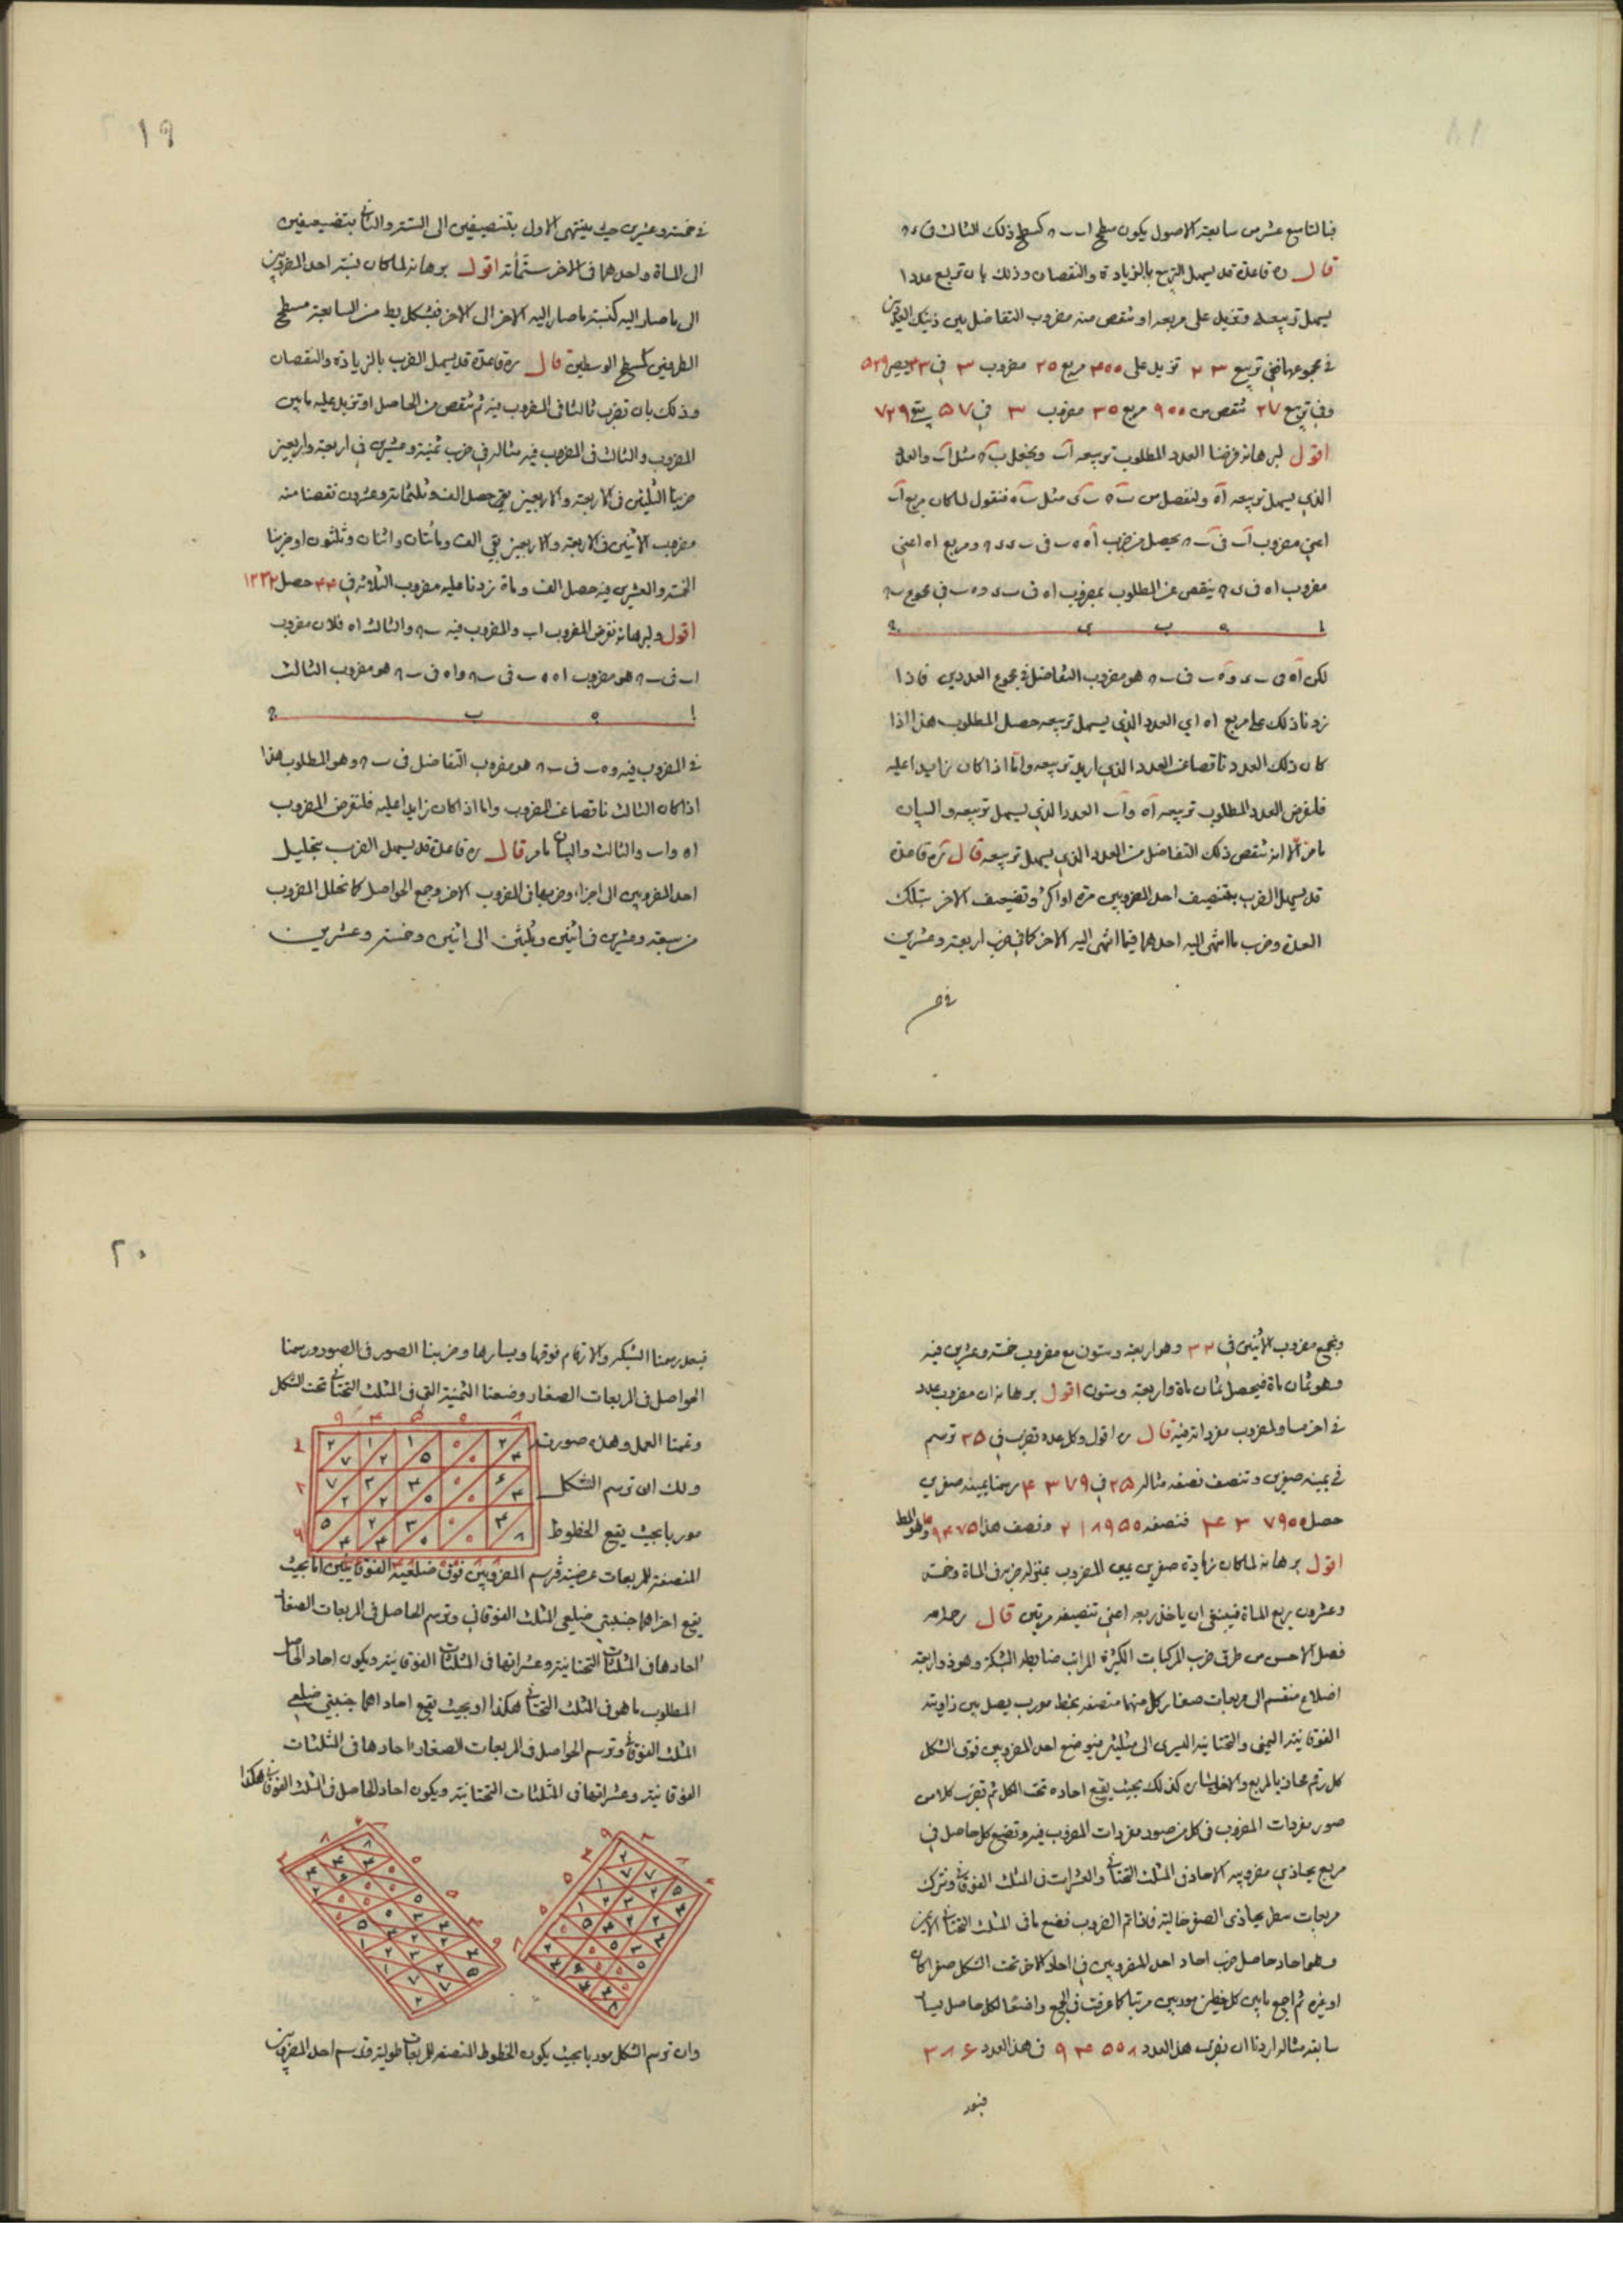 فبالتاسع عشر من سابعة الاصول يكون سطح ا ب ب ح كسطح ذلك الثالث في ء ح
قال ره قاعدة قد يسهل التربيع بالزيادة والنقصان وذلك بان تربع عددا
يسهل تربيعه وتزيد على مربعه او تنقص منه مضروب التفاضل بين ذينك العددين
في مجموعهما ففي تربيع ٢٣ تزيد على ٤٠٠ مربع ٢٠ مضروب ٣ في ٤٣ يصير ٥٢٩
وفي تربيع ٢٧ تنقص من ٩٠٠ مربع ٣٠ مضروب ٣ في ٥٧ يبقى ٧٢٩
اقول لبرهانه فرضنا العدد المطلوب تربيعه اب ونجعل ب ح مثل اب والعدد
الذي يسهل تربيعه اه ولنفصل من ب ح ب ى مثل ب ه فنقول لما كان مربع اب
اعني مضروب اب في ب ح يحصل من ضرب اه ه ب في ب ى ى ح ومربع اه اعني
مضروب اه في ى ح ينقص عن المطلوب بمضروب اه في ب ى و ه ب في مجموع ب ح
ا ه ب ى ح
لكن اه في ب ى و ه ب في ب ح هو مضروب التفاضل في مجموع العددين فاذا
زدنا ذلك على مربع اه اي العدد الذي يسهل تربيعه حصل المطلوب هذا اذا
كان ذلك العدد ناقصا عن العدد الذي اريد تربيعه واما اذا كان زايدا عليه
فلنفرض العدد المطلوب تربيعه اه و اب العدد الذي يسهل تربيعه والبيان
ما مر الا انه تنقص ذلك التفاضل من العدد الذي يسهل تربيعه قال ره قاعدة
قد يسهل الضرب بتنصيف احد المضروبين مرة او اكثر وتضعيف الاخر بتلك
العدة وضرب ما انتهى اليه احدهما فيما انتهى اليه الاخر كما في ضرب اربعة وعشرين
في خم
١٩
في خمسة وعشرين حيث ينتهى الاول بتنصيفين الى الستة والثاني بتضعيفين
الى الماة واحدهما في الاخر ستمأته اقول برهانه لما كان نسبة احد المضروبين
الى ما صار اليه كنسبة ما صار اليه الاخر الى الاخر فبشكل يط من السابعة مسطح
الطرفين كسطح الوسطين قال ره قاعدة قد يسهل الضرب بالزيادة والنقصان
وذلك بان تضرب ثالثا في المضروب فيه ثم تنقص من الحاصل او تزيد عليه ما بين
المضروب والثالث في المضروب فيه مثاله في ضرب ثمنية وعشرين في اربعة واربعين
ضربنا الثلثين في الاربعة والاربعين حصل الف وثلثماتة وعشرون نقصنا منه
مضروب الاثنين في الاربعة والاربعين بقي الف ومأتان واثنان وثلثون او ضربنا
الخمسة والعشرين فيه حصل الف وماة زدنا عليه مضروب الثلاثة في ٤٤ حصل ١٢٣٢
اقول ولبرهانه نفرض المضروب اب والمضروب فيه ب ح والثالث اه فلان مضروب
اب في ب ح هو مضروب اه ه ب في ب ح و اه في ب ح هو مضروب الثالث
ا ه ب ح
في المضروب فيه و ه ب في ب ح هو مضروب التفاضل في ب ح وهو المطلوب هذا
اذا كان الثالث ناقصا عن المضروب واما اذا كان زايدا عليه فلنفرض المضروب
اه و اب والثالث والبيان ما مر قال ره قاعدة قد يسهل الضرب بتحليل
احد المضروبين الى اجزاء وضربها في المضروب الاخر وجمع الحواصل كما نحلل المضروب
من سبعة وعشرين في اثنين وثلثين الى اثنين وخمسة وعشرين
ونجمع مضروب الاثنين في ٣٢ وهو اربعة وستون مع مضروب خمسة وعشرين فيه
وهو ثمان ماة فيحصل ثمان ماة واربعة وستون اقول برهانه ان مضروب عدد
في اخر مساو لمضروب مفرداته فيه قال ره اقول وكل عدد تضرب في ٢٥ ترسم
في يمينه صفرين وتنصف نصفه مثاله ٢٥ في ٤٣٧٩ رسمنا يمينه صفرين
حصل ٤٣٧٩٠٠ فنصفه ٢١٨٩٥٠ ونصف هذا ١٠٩٤٧٥ وهو المط
اقول برهانه لما كان زيادة صفرين يمين المضروب بمنزلة ضربه في الماة وخمسة
وعشرون ربع الماة فينبغي ان ياخذ ربعه اعني تنصيفه مرتين قال رحمه الله
فصل الاحسن من طرق ضرب المركبات الكثيرة المراتب ضابطة الشبكة وهو ذو اربعة
اضلاع منقسم الى مربعات صغار كل منها منتصفة بخط مورب يصل بين زاويته
الفوقانية اليمنى والتحتانية اليسرى الى مثلثين فيوضع احد المضروبين فوق الشكل
كل رقم محاذيا لمربع والاخر يساره كذلك بحيث يقع احاده تحت الكل ثم تضرب كلا من
صور مفردات المضروب في كل من صور مفردات المضروب فيه وتضع كل حاصل في
مربع يحاذي مضروبيه الاحاد في المثلث التحتاني والعشرات في المثلث الفوقاني وتترك
مربعات سطر يحاذى الصفر خالية فاذا تم الضرب فضع ما في المثلث التحتاني الايمن
وهو احاد حاصل ضرب احاد احد المضروبين في احاد الاخر تحت الشكل صفرا كان
او غيره ثم اجمع ما بين كل خطين موربين مرتبا كما عرفت في الجمع واضعا لكل حاصل يسار
سابقه مثاله اردنا ان نضرب هذا العدد ٩٣٥٠٨ في هذا العدد ٣٨٦
فبعد
٢٠
فبعد رسمنا الشبكة والارقام فوقها ويسارها وضربنا الصور في الصور ورسمنا
الحواصل في المربعات الصغار وضعنا الثمنية التي في المثلث التحتاني تحت الشكل
وتممنا العمل وهذه صورته
ولك ان ترسم الشكل
موربا بحيث يقع الخطوط
المنصفة للمربعات عرضية فترسم المضروبين فوق ضلعيه الفوقانيين اما بحيث
يقع اخراهما جنبتي ضلعي المثلث الفوقاني وترسم الحاصل في المربعات الصغار
احادها في المثلثات التحتانية وعشراتها في المثلثات الفوقانية ويكون احاد الحاصل
المطلوب ما هو في المثلث التحتاني هكذا او بحيث يقع احاداهما جنبتي ضلعي
المثلث الفوقاني وترسم الحواصل في المربعات الصغار احادها في المثلثات
الفوقانية وعشراتها في المثلثات التحتانية ويكون احاد الحاصل في المثلث الفوقاني هكذا
وان ترسم الشكل موربا بحيث يكون الخطوط المنصفة للمربعات طولية وترسم احد المضروبين